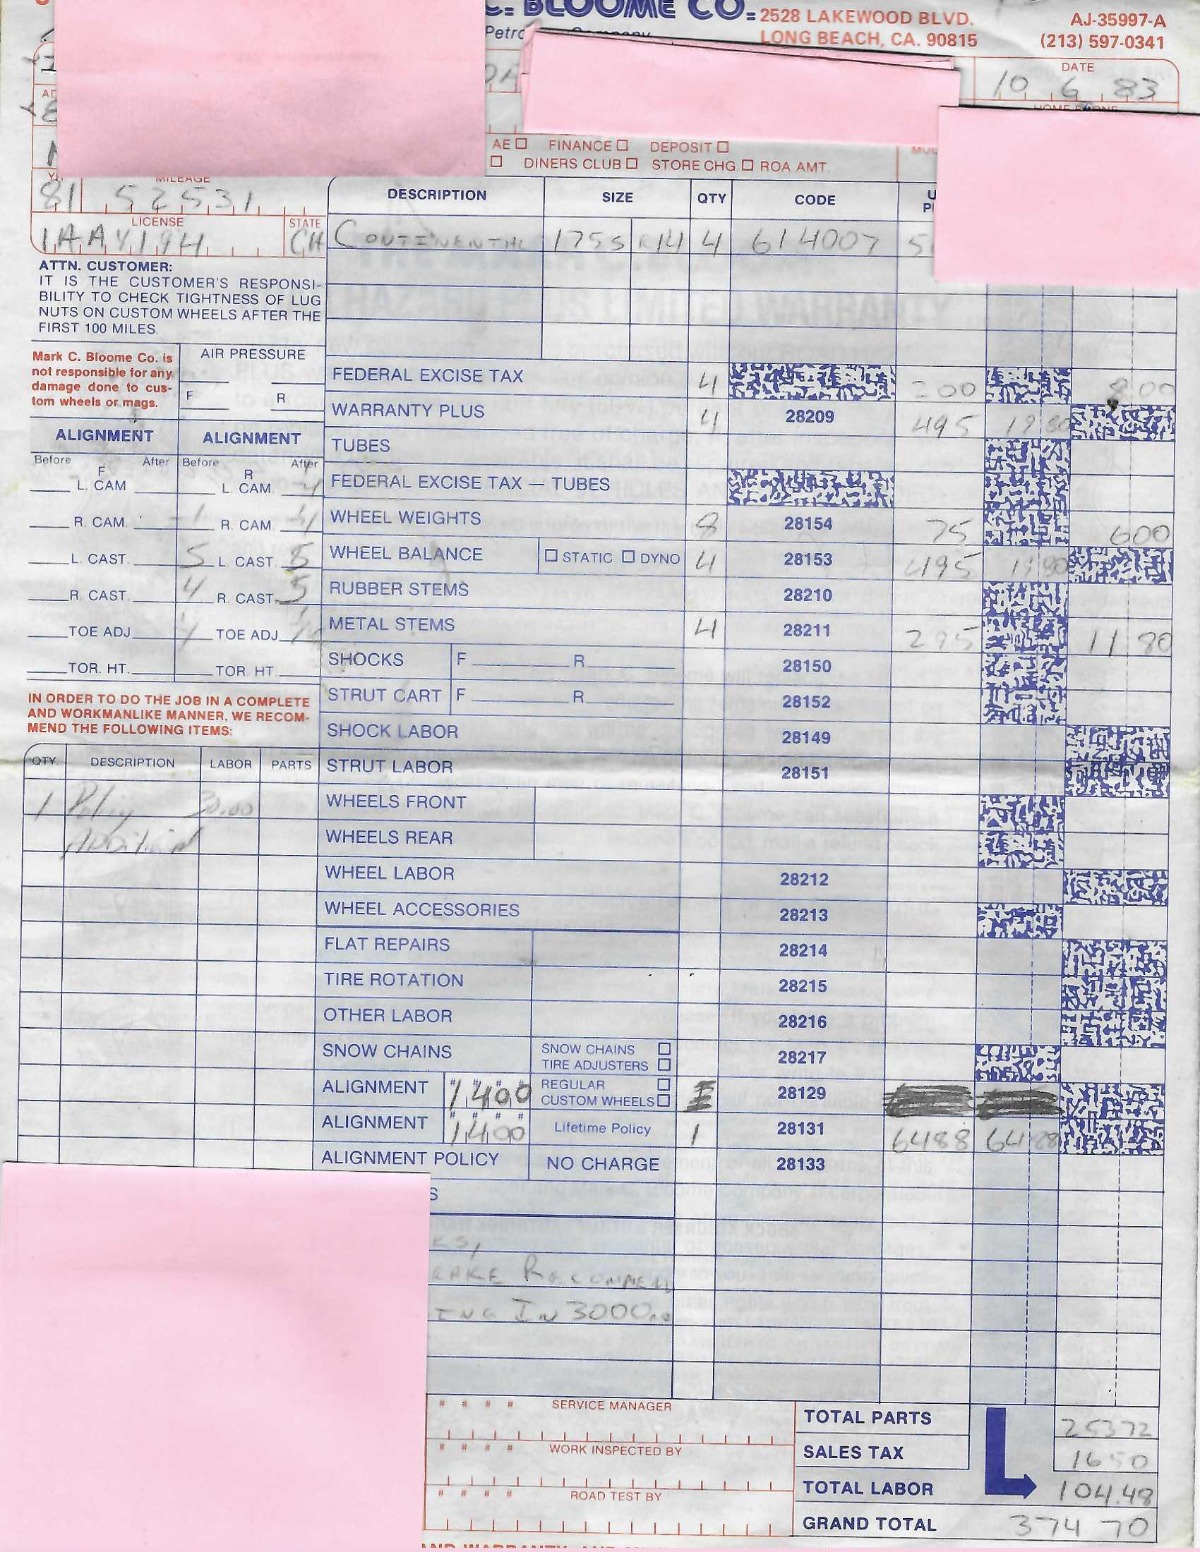 C. BLOOME CO. 2528 LAKEWOOD BLVD. AJ-35997-A
LONG BEACH, CA. 90815 (213) 597-0341
DATE
10 6 83
AE FINANCE DEPOSIT
DINERS CLUB STORE CHG ROA AMT.
MILEAGE
81 52531
LICENSE STATE
DESCRIPTION SIZE QTY CODE
CONTINENTAL 175S R14 4 614007
ATTN. CUSTOMER:
IT IS THE CUSTOMER'S RESPONSI-
BILITY TO CHECK TIGHTNESS OF LUG
NUTS ON CUSTOM WHEELS AFTER THE
FIRST 100 MILES.
Mark C. Bloome Co. is
not responsible for any
damage done to cus-
tom wheels or mags.
AIR PRESSURE
F R
ALIGNMENT ALIGNMENT
Before After Before After
F R
L. CAM L. CAM
R. CAM R. CAM
L. CAST. 5 L. CAST. 5
R. CAST. 4 R. CAST. 5
TOE ADJ. TOE ADJ.
TOR. HT. TOR. HT.
IN ORDER TO DO THE JOB IN A COMPLETE
AND WORKMANLIKE MANNER, WE RECOM-
MEND THE FOLLOWING ITEMS:
QTY. DESCRIPTION LABOR PARTS
1 Policy 30.00
Additional
FEDERAL EXCISE TAX 4 200 8.00
WARRANTY PLUS 4 28209 495 19 80
TUBES
FEDERAL EXCISE TAX — TUBES
WHEEL WEIGHTS 8 28154 75 600
WHEEL BALANCE STATIC DYNO 4 28153 495 19 80
RUBBER STEMS 28210
METAL STEMS 4 28211 295 11 80
SHOCKS F R 28150
STRUT CART F R 28152
SHOCK LABOR 28149
STRUT LABOR 28151
WHEELS FRONT
WHEELS REAR
WHEEL LABOR 28212
WHEEL ACCESSORIES 28213
FLAT REPAIRS 28214
TIRE ROTATION 28215
OTHER LABOR 28216
SNOW CHAINS SNOW CHAINS TIRE ADJUSTERS 28217
ALIGNMENT 1400 REGULAR CUSTOM WHEELS 28129
ALIGNMENT 1400 Lifetime Policy 1 28131 6488 64 88
ALIGNMENT POLICY NO CHARGE 28133
S
KS,
EAKE RECOMMEN
ING IN 3000
# # # # SERVICE MANAGER
# # # # WORK INSPECTED BY
# # # # ROAD TEST BY
TOTAL PARTS 253 72
SALES TAX 16 50
TOTAL LABOR 104.48
GRAND TOTAL 374 70